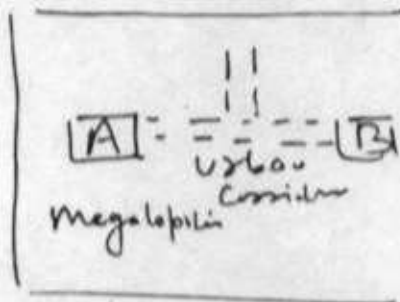 A B
Urban
Corridor
Megalopolis